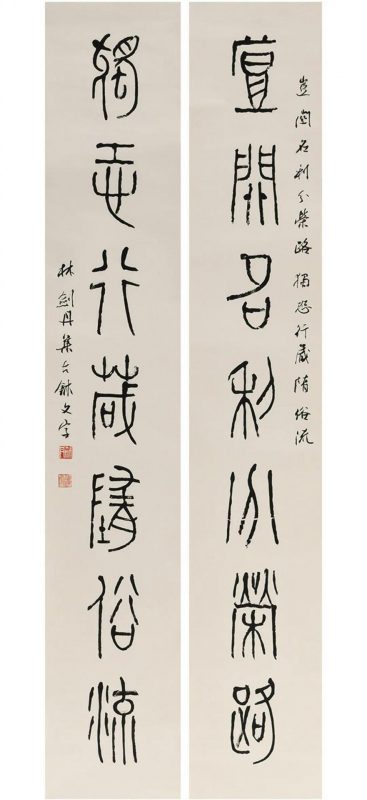 豈関名利分榮路 獨恐行藏隋俗流
豈関名利分榮路
獨恐行藏隋俗流
林劍丹集古鉥文字